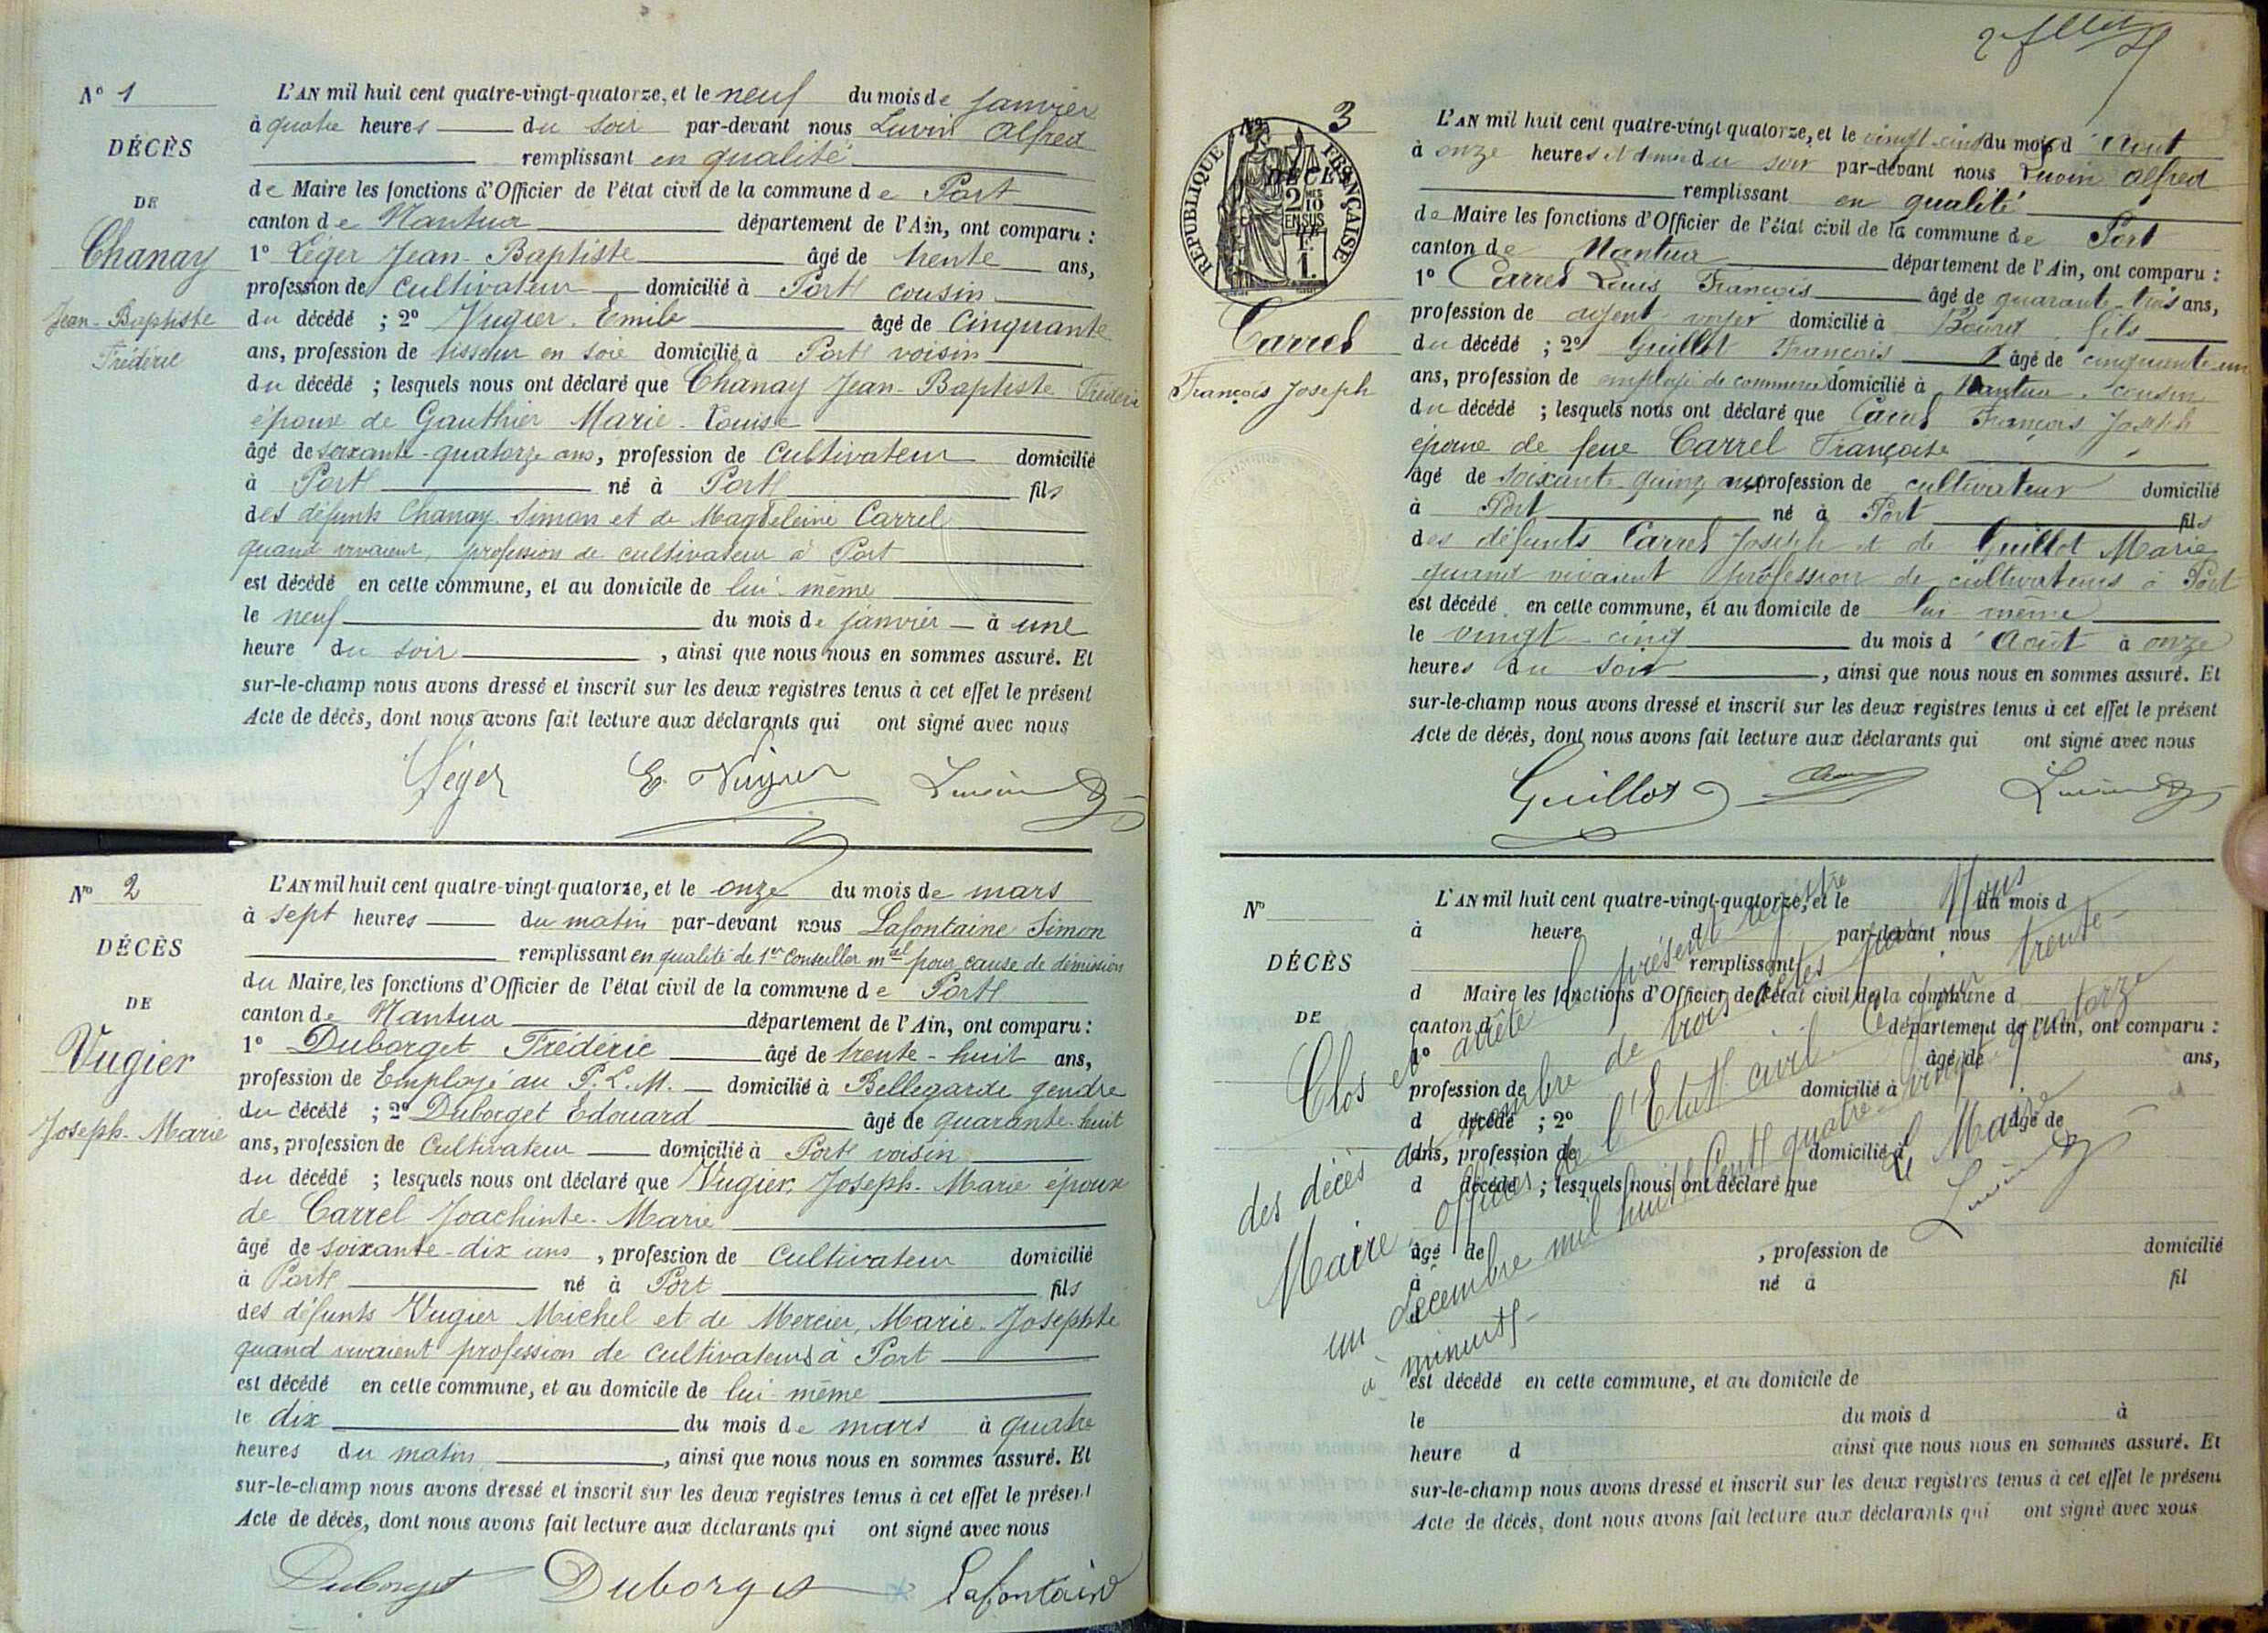 N° 1
DÉCÈS
DE
Chanay
Jean-Baptiste
Frédéric
L'AN mil huit cent quatre-vingt-quatorze, et le neuf du mois de janvier
à quatre heures du soir par-devant nous Luvin Alfred
remplissant en qualité
de Maire les fonctions d'Officier de l'état civil de la commune de Port
canton de Nantua département de l'Ain, ont comparu :
1° Léger Jean-Baptiste âgé de trente ans,
profession de cultivateur domicilié à Port cousin
du décédé ; 2° Vugier Emile âgé de cinquante
ans, profession de tisseur en soie domicilié à Port voisin
du décédé ; lesquels nous ont déclaré que Chanay Jean-Baptiste Frédéric
époux de Gauthier Marie-Louise
âgé de soixante-quatorze ans, profession de cultivateur domicilié
à Port né à Port fils
des défunts Chanay Simon et de Magdeleine Carrel
quand vivaient, profession de cultivateur à Port
est décédé en cette commune, et au domicile de lui-même
le neuf du mois de janvier à une
heure du soir, ainsi que nous nous en sommes assuré. Et
sur-le-champ nous avons dressé et inscrit sur les deux registres tenus à cet effet le présent
Acte de décès, dont nous avons fait lecture aux déclarants qui ont signé avec nous
Léger E. Vugier Luvin
N° 2
DÉCÈS
DE
Vugier
Joseph-Marie
L'AN mil huit cent quatre-vingt-quatorze, et le onze du mois de mars
à sept heures du matin par-devant nous Lafontaine Simon
remplissant en qualité de 1er Conseiller mal pour cause de démission
du Maire, les fonctions d'Officier de l'état civil de la commune de Port
canton de Nantua département de l'Ain, ont comparu :
1° Duborget Frédéric âgé de trente-huit ans,
profession de Employé au P.L.M. domicilié à Bellegarde gendre
du décédé ; 2° Duborget Edouard âgé de quarante-huit
ans, profession de Cultivateur domicilié à Port voisin
du décédé ; lesquels nous ont déclaré que Vugier, Joseph-Marie époux
de Carrel Joachinte-Marie
âgé de soixante-dix ans, profession de Cultivateur domicilié
à Port né à Port fils
des défunts Vugier Michel et de Mercier, Marie-Josephte
quand vivaient profession de cultivateurs à Port
est décédé en cette commune, et au domicile de lui-même
le dix du mois de mars à quatre
heures du matin, ainsi que nous nous en sommes assuré. Et
sur-le-champ nous avons dressé et inscrit sur les deux registres tenus à cet effet le présent
Acte de décès, dont nous avons fait lecture aux déclarants qui ont signé avec nous
Duborget Duborget Lafontaine
N° 3
DÉCÈS
RÉPUBLIQUE FRANÇAISE
2 MES
10
EN SUS
1 F.
Carrel
François Joseph
L'AN mil huit cent quatre-vingt quatorze, et le vingt-cinq du mois d'Août
à onze heures et demie du soir par-devant nous Luvin Alfred
remplissant en qualité
de Maire les fonctions d'Officier de l'état civil de la commune de Port
canton de Nantua département de l'Ain, ont comparu :
1° Carrel Louis François âgé de quarante-trois ans,
profession de agent voyer domicilié à fils
du décédé ; 2° Guillot François âgé de cinquante-un
ans, profession de employé de commerce domicilié à Nantua, cousin
du décédé ; lesquels nous ont déclaré que Carrel François Joseph
époux de feue Carrel Françoise
âgé de soixante-quinze ans profession de cultivateur domicilié
à Port né à Port fils
des défunts Carrel Joseph et de Guillot Marie
quand vivaient profession de cultivateurs à Port
est décédé en cette commune, et au domicile de lui même
le vingt-cinq du mois d'Août à onze
heures du soir, ainsi que nous nous en sommes assuré. Et
sur-le-champ nous avons dressé et inscrit sur les deux registres tenus à cet effet le présent
Acte de décès, dont nous avons fait lecture aux déclarants qui ont signé avec nous
Guillot Luvin
N°
DÉCÈS
DE
L'AN mil huit cent quatre-vingt-quatorze, et le du mois d
à heure d par-devant nous
remplissant
d Maire les fonctions d'Officier de l'état civil de la commune d
canton d département de l'Ain, ont comparu :
1° âgé de ans,
profession de domicilié à
d décédé ; 2° âgé de
ans, profession de domicilié à
d décédé ; lesquels nous ont déclaré que
âgé de , profession de domicilié
à né à fil
d
est décédé en cette commune, et au domicile de
le du mois d à
heure d ainsi que nous nous en sommes assuré. Et
sur-le-champ nous avons dressé et inscrit sur les deux registres tenus à cet effet le présent
Acte de décès, dont nous avons fait lecture aux déclarants qui ont signé avec nous
Clos et arrêté le présent registre
des décès au nombre de trois actes par Nous
Maire officier de l'Etat civil. Ce jour trente-
un Décembre mil huit Cent quatre-vingt quatorze
à minuit
Le Maire
Luvin